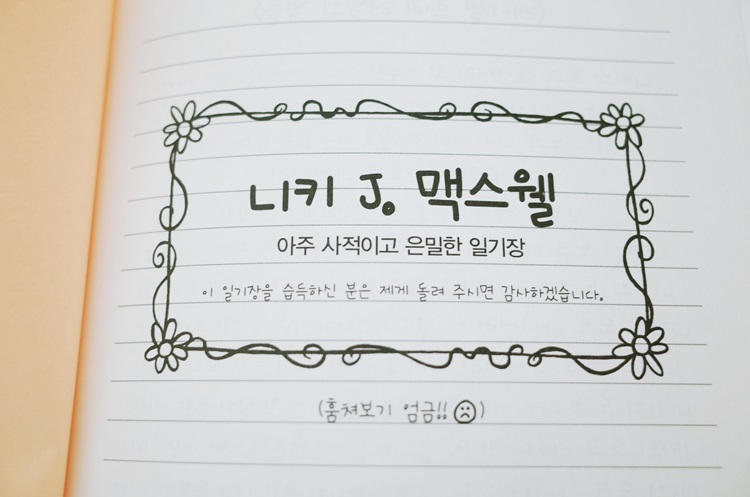 니키 J. 맥스웰
아주 사적이고 은밀한 일기장
이 일기장을 습득하신 분은 제게 돌려 주시면 감사하겠습니다.
(훔쳐보기 엄금!! ☹)